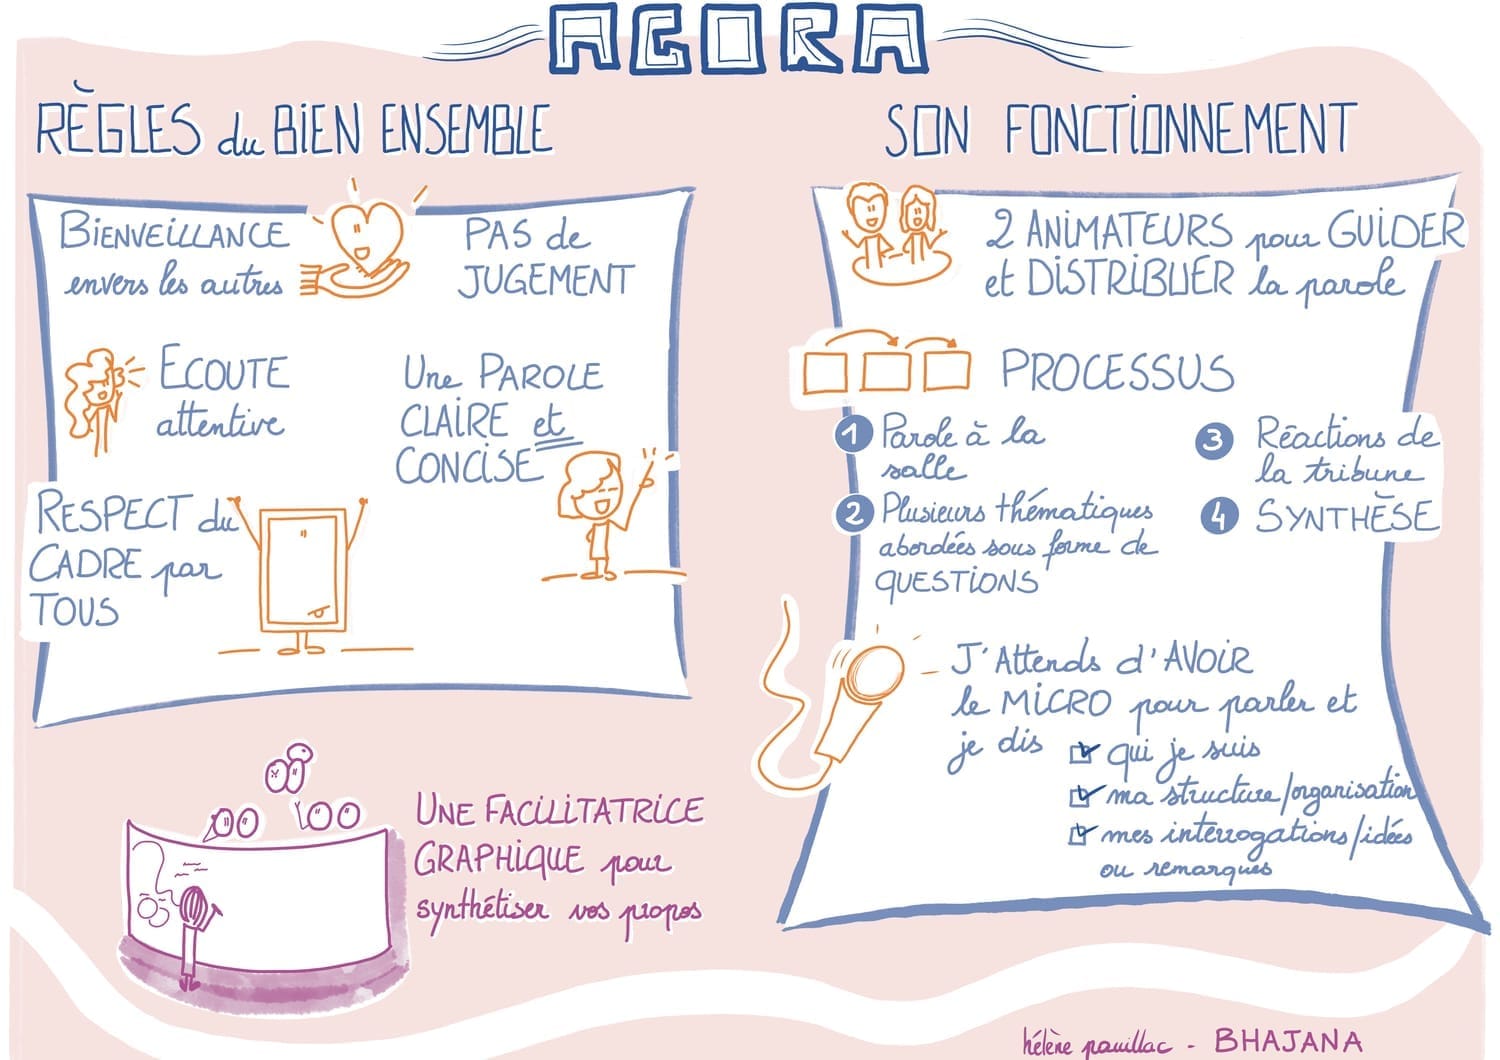 AGORA
RÈGLES du BIEN ENSEMBLE
BIENVEILLANCE
envers les autres
PAS de
JUGEMENT
ECOUTE
attentive
Une PAROLE
CLAIRE et
CONCISE
RESPECT du
CADRE par
TOUS
UNE FACILITATRICE
GRAPHIQUE pour
synthétiser vos propos
SON FONCTIONNEMENT
2 ANIMATEURS pour GUIDER
et DISTRIBUER la parole
PROCESSUS
1 Parole à la
salle
2 Plusieurs thématiques
abordées sous forme de
QUESTIONS
3 Réactions de
la tribune
4 SYNTHÈSE
J'Attends d'AVOIR
le MICRO pour parler et
je dis
qui je suis
ma structure/organisation
mes interrogations/idées
ou remarques
hélène pouillac - BHAJANA